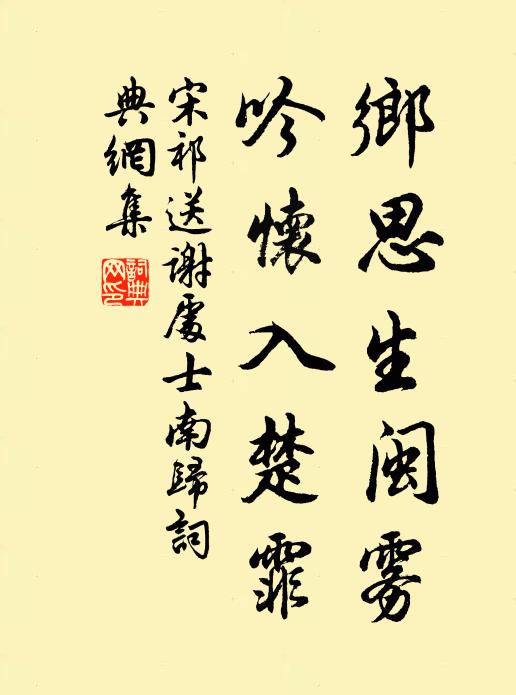 鄉思生閩雾
吟懷入楚霏
宋祁送謝處士南歸詞
典網集
詞典網印